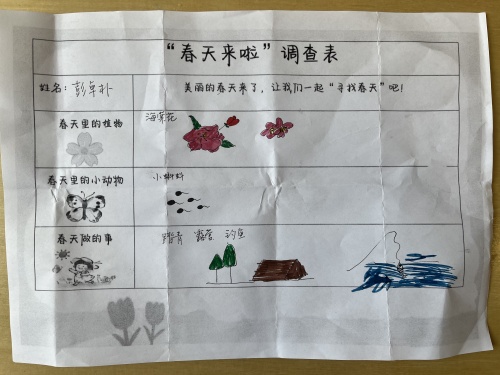 “春天来啦”调查表
姓名：彭卓朴
美丽的春天来了，让我们一起“寻找春天”吧！
春天里的植物
海棠花
春天里的小动物
小蝌蚪
春天做的事
踏青 露营 钓鱼